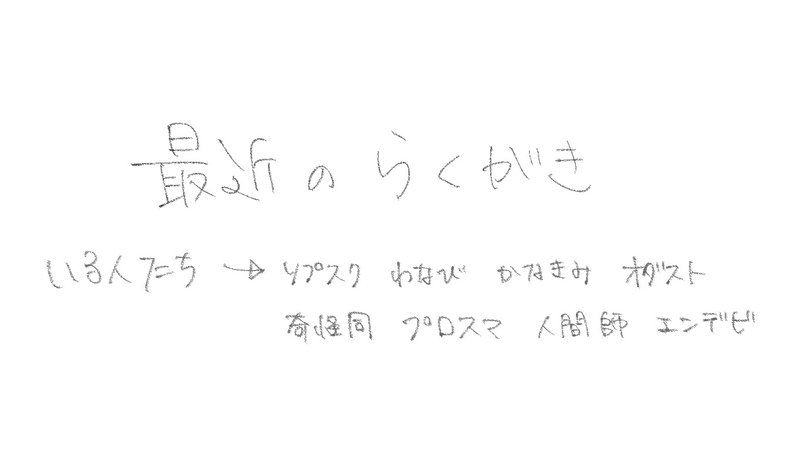 最近のらくがき
いる人たち → リプスク わなび かなきみ オグスト
奇怪同 プロスマ 人間師 エンデビ